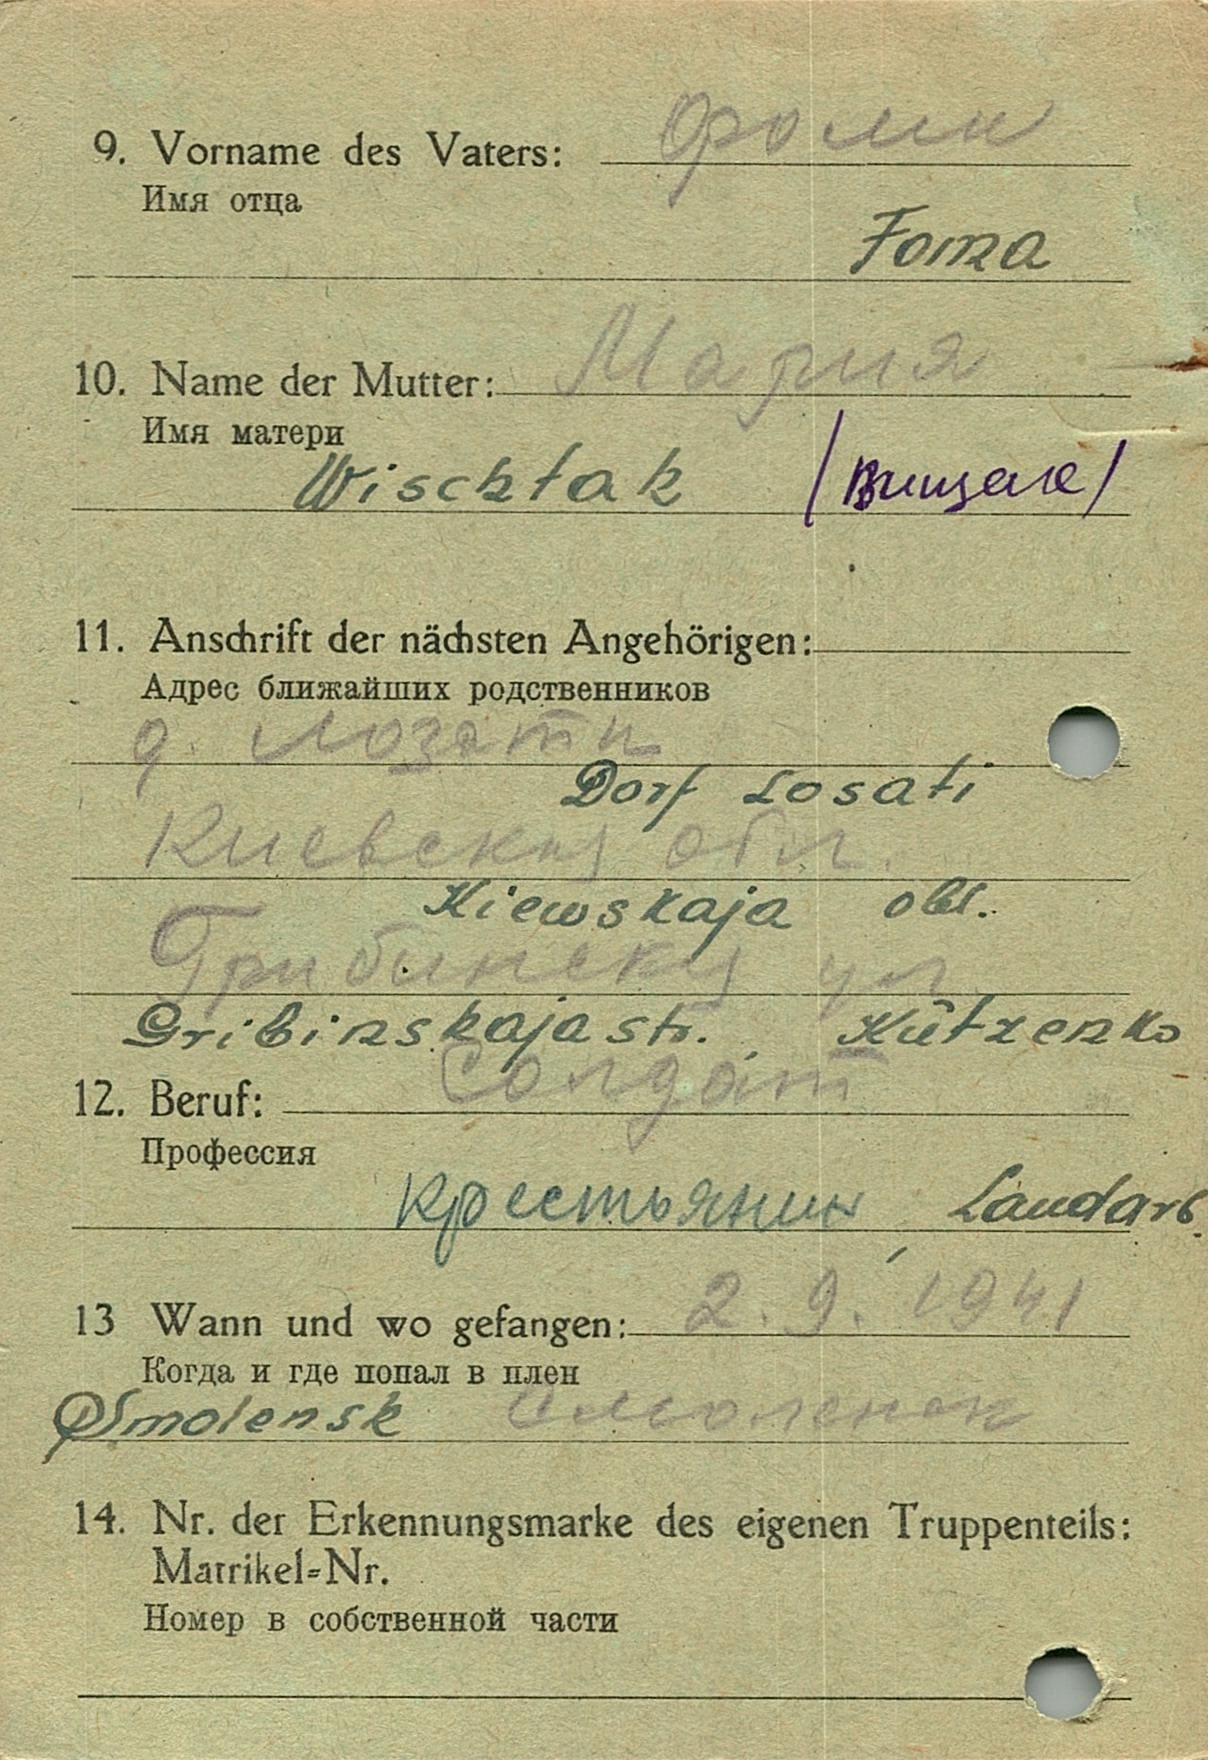 9. Vorname des Vaters: Фоми
Имя отца
Foma
10. Name der Mutter: Мария
Имя матери
Wischtak
11. Anschrift der nächsten Angehörigen:
Адрес ближайших родственников
д. Лозати
Dorf Losati
Киевская обл.
Kiewskaja obl.
Грибинска ул
Gribinskaja str. Kutzenko
12. Beruf: Солдат
Профессия
крестьянин Landarb.
13 Wann und wo gefangen: 2.9.1941
Когда и где попал в плен
Smolensk Смоленск
14. Nr. der Erkennungsmarke des eigenen Truppenteils:
Matrikel-Nr.
Номер в собственной части